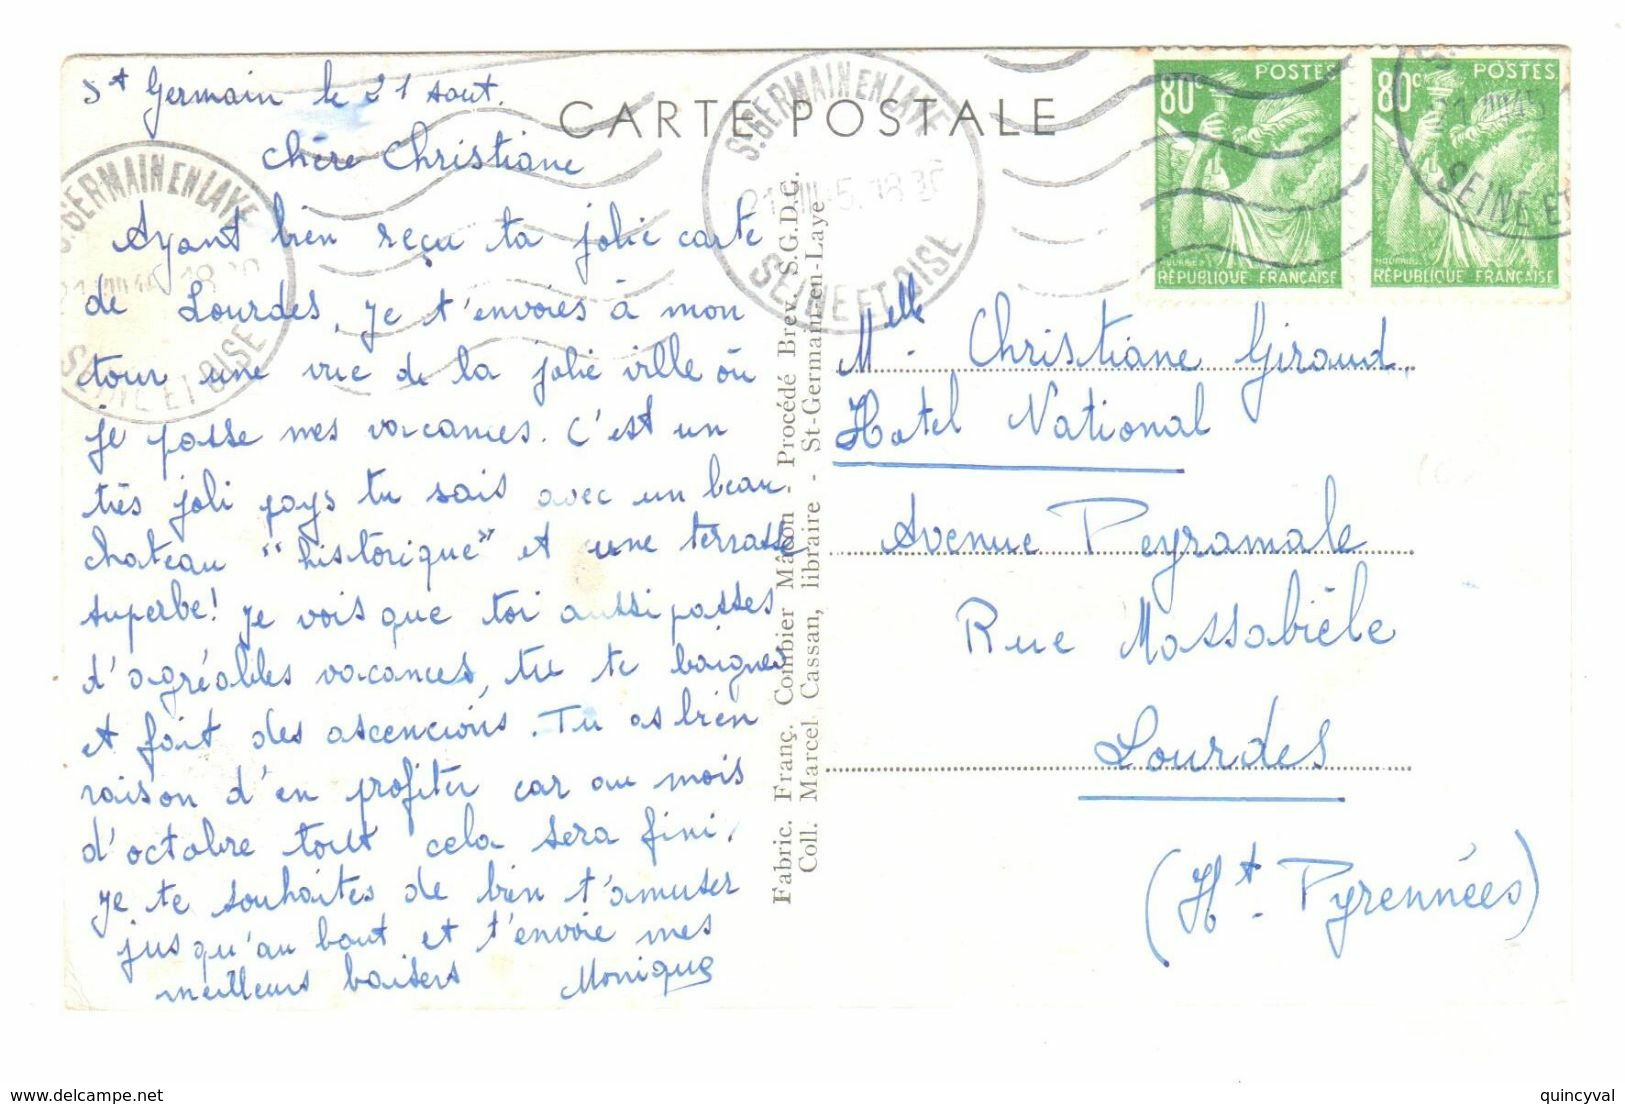 St Germain le 21 aout.
Chère Christiane
Ayant bien reçu ta jolie carte
de Lourdes, je t'envoies à mon
tour une vue de la jolie ville où
je passe mes vacances. C'est un
très joli pays tu sais avec un beau
chateau "historique" et une terrasse
superbe! Je vois que toi aussi passes
d'agréables vacances, tu te baignes
et fait des ascencions. Tu as bien
raison d'en profiter car au mois
d'octobre tout cela sera fini.
Je te souhaites de bien t'amuser
jusqu'au bout et t'envoie mes
meilleurs baisers Monique
CARTE POSTALE
Fabric. Franç. Combier Mâcon - Procédé Brev. S.G.D.G.
Coll. Marcel Cassan, libraire - St-Germain-en-Laye
S.GERMAIN EN LAYE
SEINE ET OISE
S.GERMAIN EN LAYE
18 30
SEINE ET OISE
SEINE ET
80c POSTES
RÉPUBLIQUE FRANÇAISE
80c POSTES
RÉPUBLIQUE FRANÇAISE
Melle Christiane Giraud,
Hotel National
Avenue Peyramale
Rue Massabièle
Lourdes
(Ht. Pyrennées)
delcampe.net
quincyval